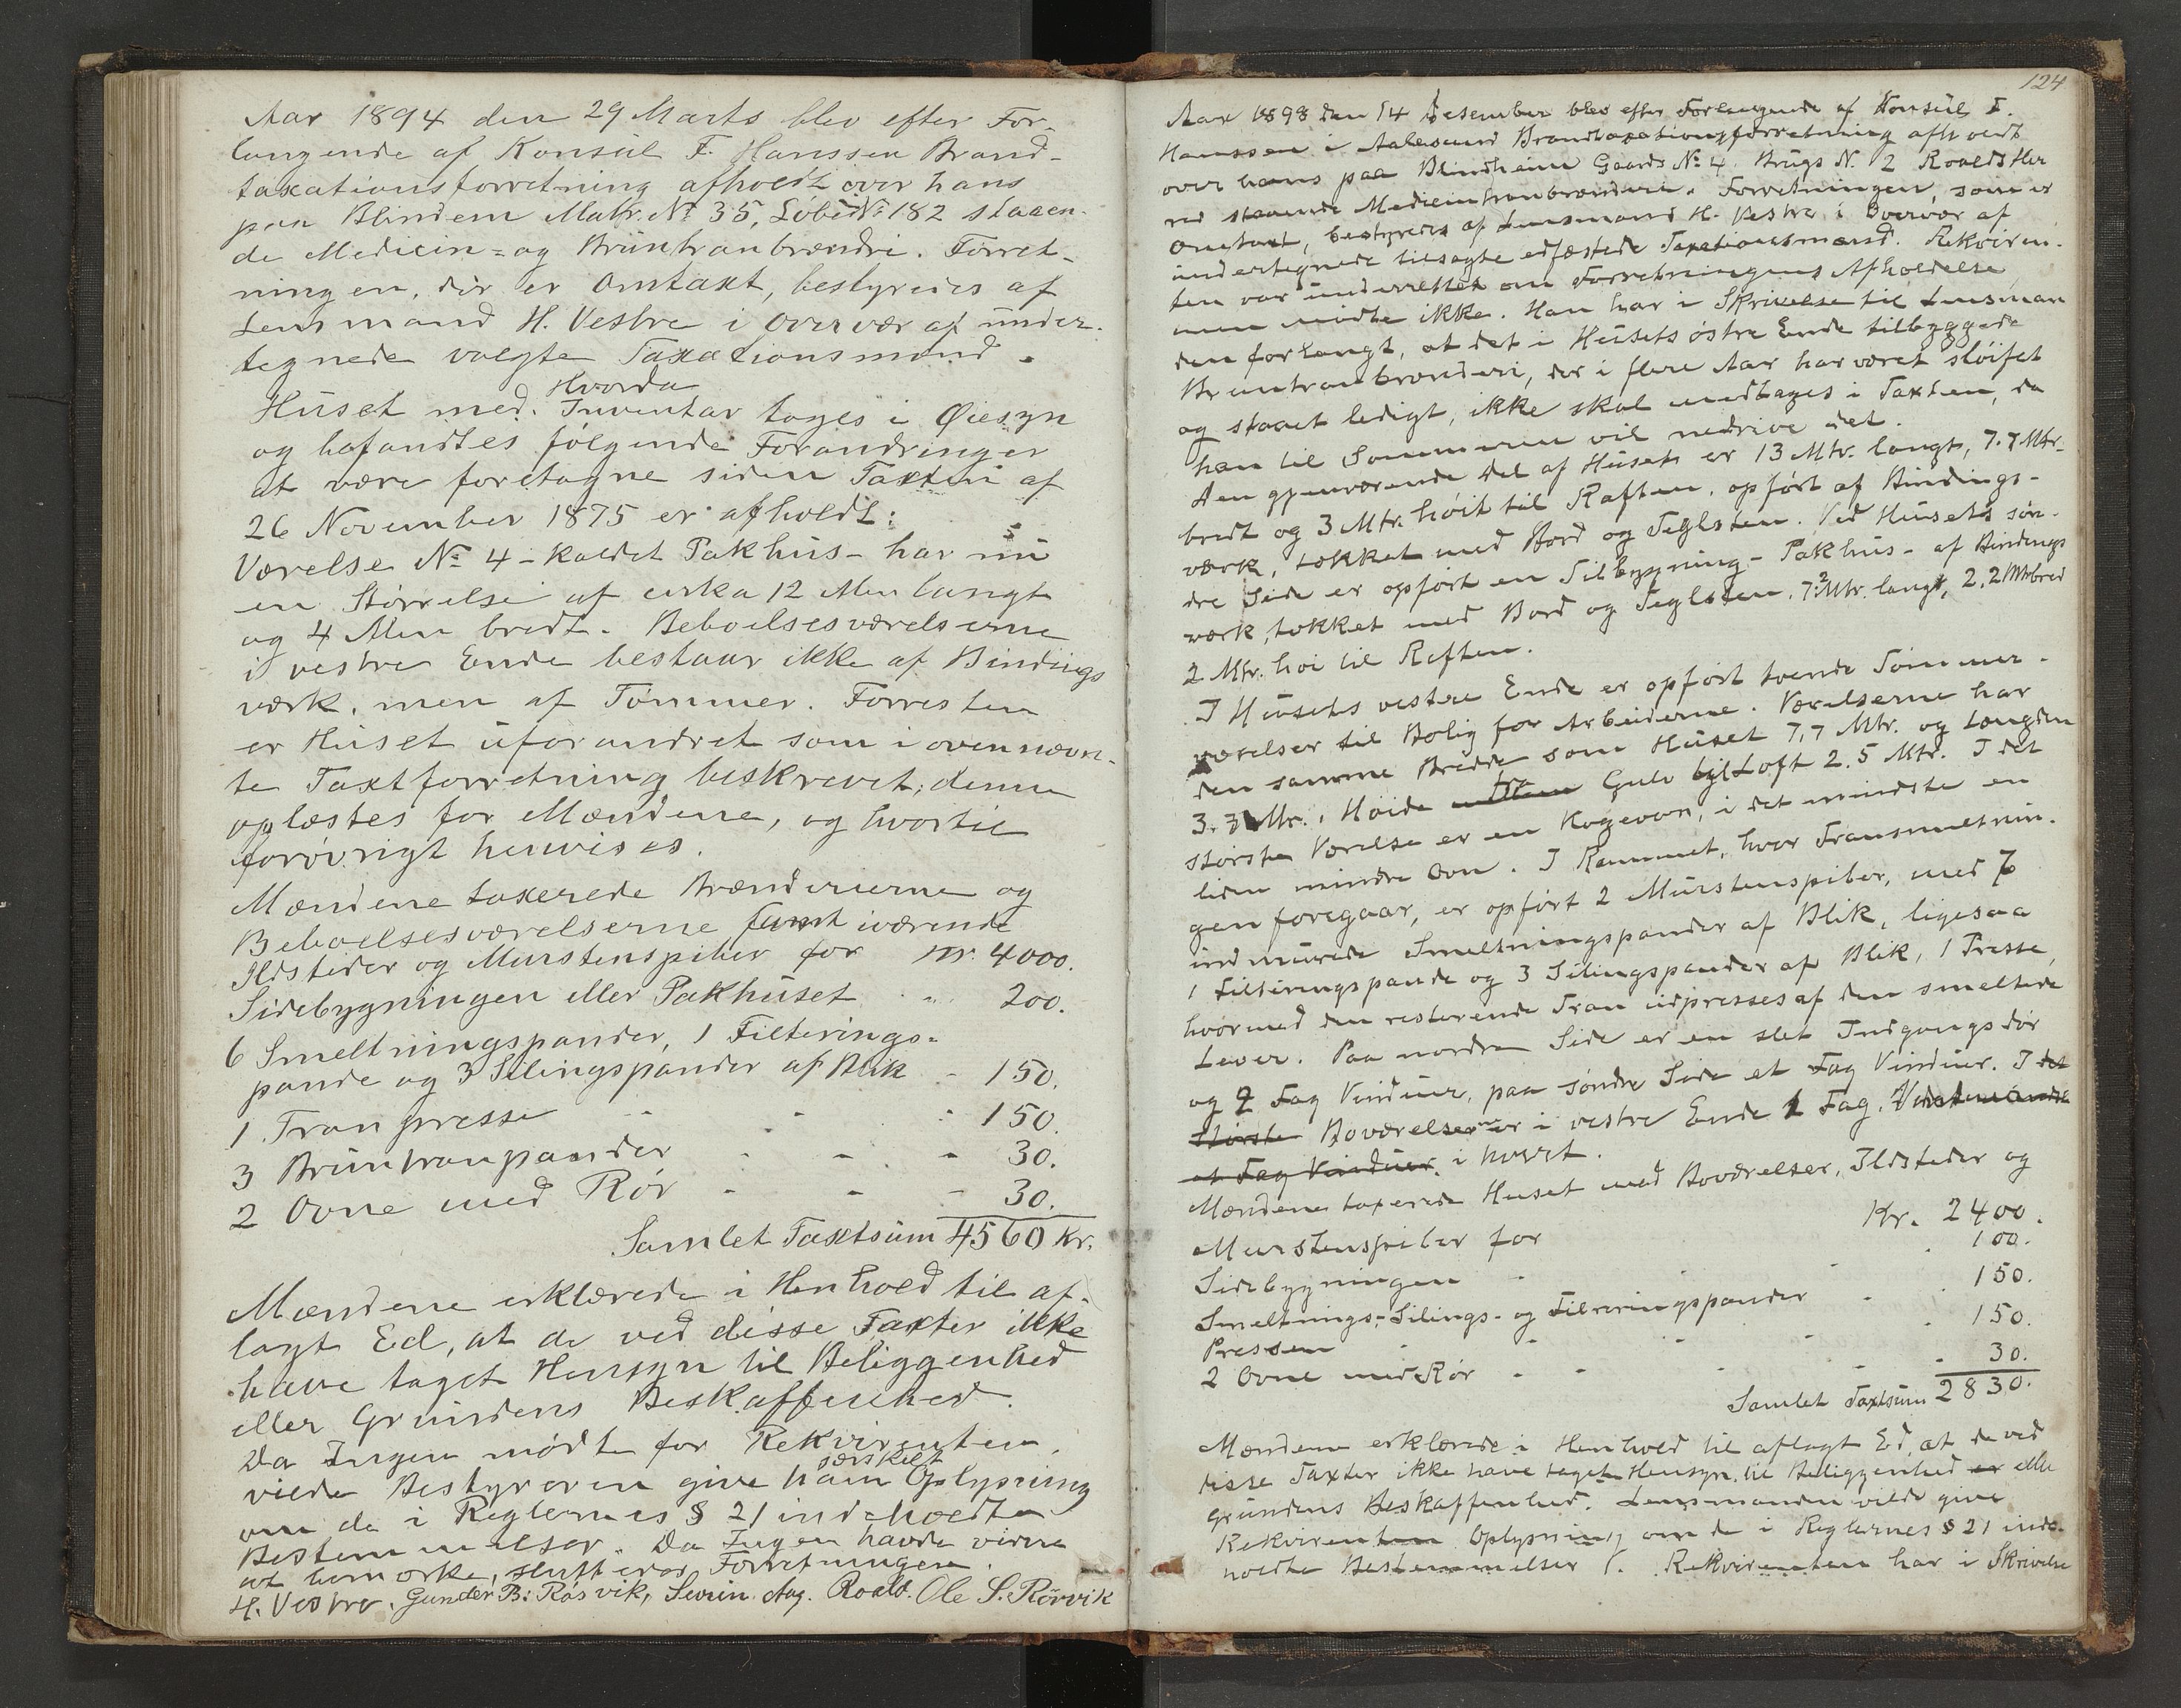 Aar 1894 den 29 Marts blev efter For-
langende af Konsul F. Hanssen Brand-
taxationsforretning afholdt over hans
paa Blindem Matr. No 35, Løbe No 182 staaen-
de Medicin- og Bruntranbrænderi. Forret-
ningen, der er Omtaxt, bestyredes af
Lensmand H. Vestre i Overvær af under-
tegnede valgte Taxationsmænd.
Hvorda
Huset med Inventar toges i Øiesyn
og befandtes følgende Forandringer
at være foretagne siden Taxten af
26 November 1875 er afholdt:
Værelse No 4 - kaldet Pakhus - har nu
en Størrelse af cirka 12 Alen langt
og 4 Alen bredt. Beboelsesværelserne
i vestre Ende bestaar ikke af Bindings
værk, men af Tømmer. Forresten
er Huset uforandret som i ovennævn-
te Taxtforretning beskrevet; denne
oplæstes for Mændene, og hvortil
forøvrigt henvises.
Mændene taxerede Brænderierne og
Beboelsesværelserne samt iværende
Ildsteder og Murstenspiber for Kr. 4000.
Sidebygningen eller Pakhuset " 200.
6 Smeltningspander, 1 Filterings-
pande og 3 Silingspander af Blik - 150.
1 Tranpresse - - - 150.
3 Bruntranpander - - - 30.
2 Ovne med Rør - - - 30.
Samlet Taxtsum 4560 Kr.
Mændene erklærede i Henhold til af-
lagt Ed, at de ved disse Taxter ikke
have taget Hensyn til Beliggenhed
eller Grundens Beskaffenhed.
Da Ingen mødte for Rekvirenten,
særskilt
vilde Bestyreren give ham Oplysning
om de i Reglernes § 21 indeholdte
Bestemmelser. Da Ingen havde videre
at bemærke, sluttedes Forretningen.
H. Vestre. Gunder B: Røsvik, Severin Aag. Roald. Ole S. Rørvik
124
Aar 1898 den 14 Desember blev efter Forlangende af Konsul F.
Hanssen i Aalesund Brandtaxationsforretning afholdt
over hans paa Blindheim Gaards No 4 Brugs N. 2 Roalds Her
red staaende Medicintranbrænderi. Forretningen, som er
Omtaxt, bestyredes af Lensmand H. Vestre i Overvær af
undertegnede tilsagte edfæstede Taxationsmænd. Rekviren-
ten var underrettet om Forretningens Afholdelse,
men mødte ikke. Han har i Skrivelse til Lensman
den forlangt, at det i Husets østre Ende tilbyggede
Bruntranbrænderi, der i flere Aar har været sløifet
og staaet ledigt, ikke skal medtages i Taxten, da
han til Sommeren vil nedrive det.
Den gjenværende Del af Huset er 13 Mtr. langt, 7.7 Mtr.
bredt og 3 Mtr. høit til Raften, opført af Bindings-
værk, tækket med Bord og Teglsten. Ved Husets søn-
dre Side er opført en Tilbygning - Pakhus - af Bindings
værk, tækket med Bord og Teglsten, 7.2 Mtr. langt, 2.2 Mtr bred
2 Mtr. høi til Raften.
I Husets vestre Ende er opført tvende Tømmer-
værelser til Bolig for Arbeiderne. Værelserne har
den samme Bredde som Huset 7,7 Mtr. og Længden
3.3 Mtr., Høide fra Gulv til Loft 2.5 Mtr. I det
største Værelse er en Kogeovn, i det mindste en
liden mindre Ovn. I Rummet, hvor Transmeltnin-
gen foregaar, er opført 2 Murstenspiber, med 6
indmurede Smeltningspander af Blik, ligesaa
1 Filteringspande og 3 Silingspander af Blik, 1 Presse,
hvormed den resterende Tran udpresses af den smeltede
Lever. Paa nordre Side er en slet Indgangsdør
og 2 Fag Vinduer, paa søndre Side et Fag Vinduer. I det
største Boværelserne er i vestre Ende 1 Fag Vinduer
et Fag Vinduer i hvert.
Mændene taxerede Huset med Boværelser, Ildsteder og
Murstenspiber for Kr. 2400.
Sidebygningen - - - 100.
Smeltnings-, Silings- og Filtreringspander - 150.
Pressen - - - 150.
2 Ovne med Rør - - - 30.
Samlet Taxtsum 2830.
Mændene erklærede i Henhold til aflagt Ed, at de ved
disse Taxter ikke have taget Hensyn til Beliggenhed er eller
Grundens Beskaffenhed. Lensmanden vilde give
Rekvirenten Oplysning om de i Reglernes § 21 inde-
holdte Bestemmelser. Rekvirenten har i Skrivelse